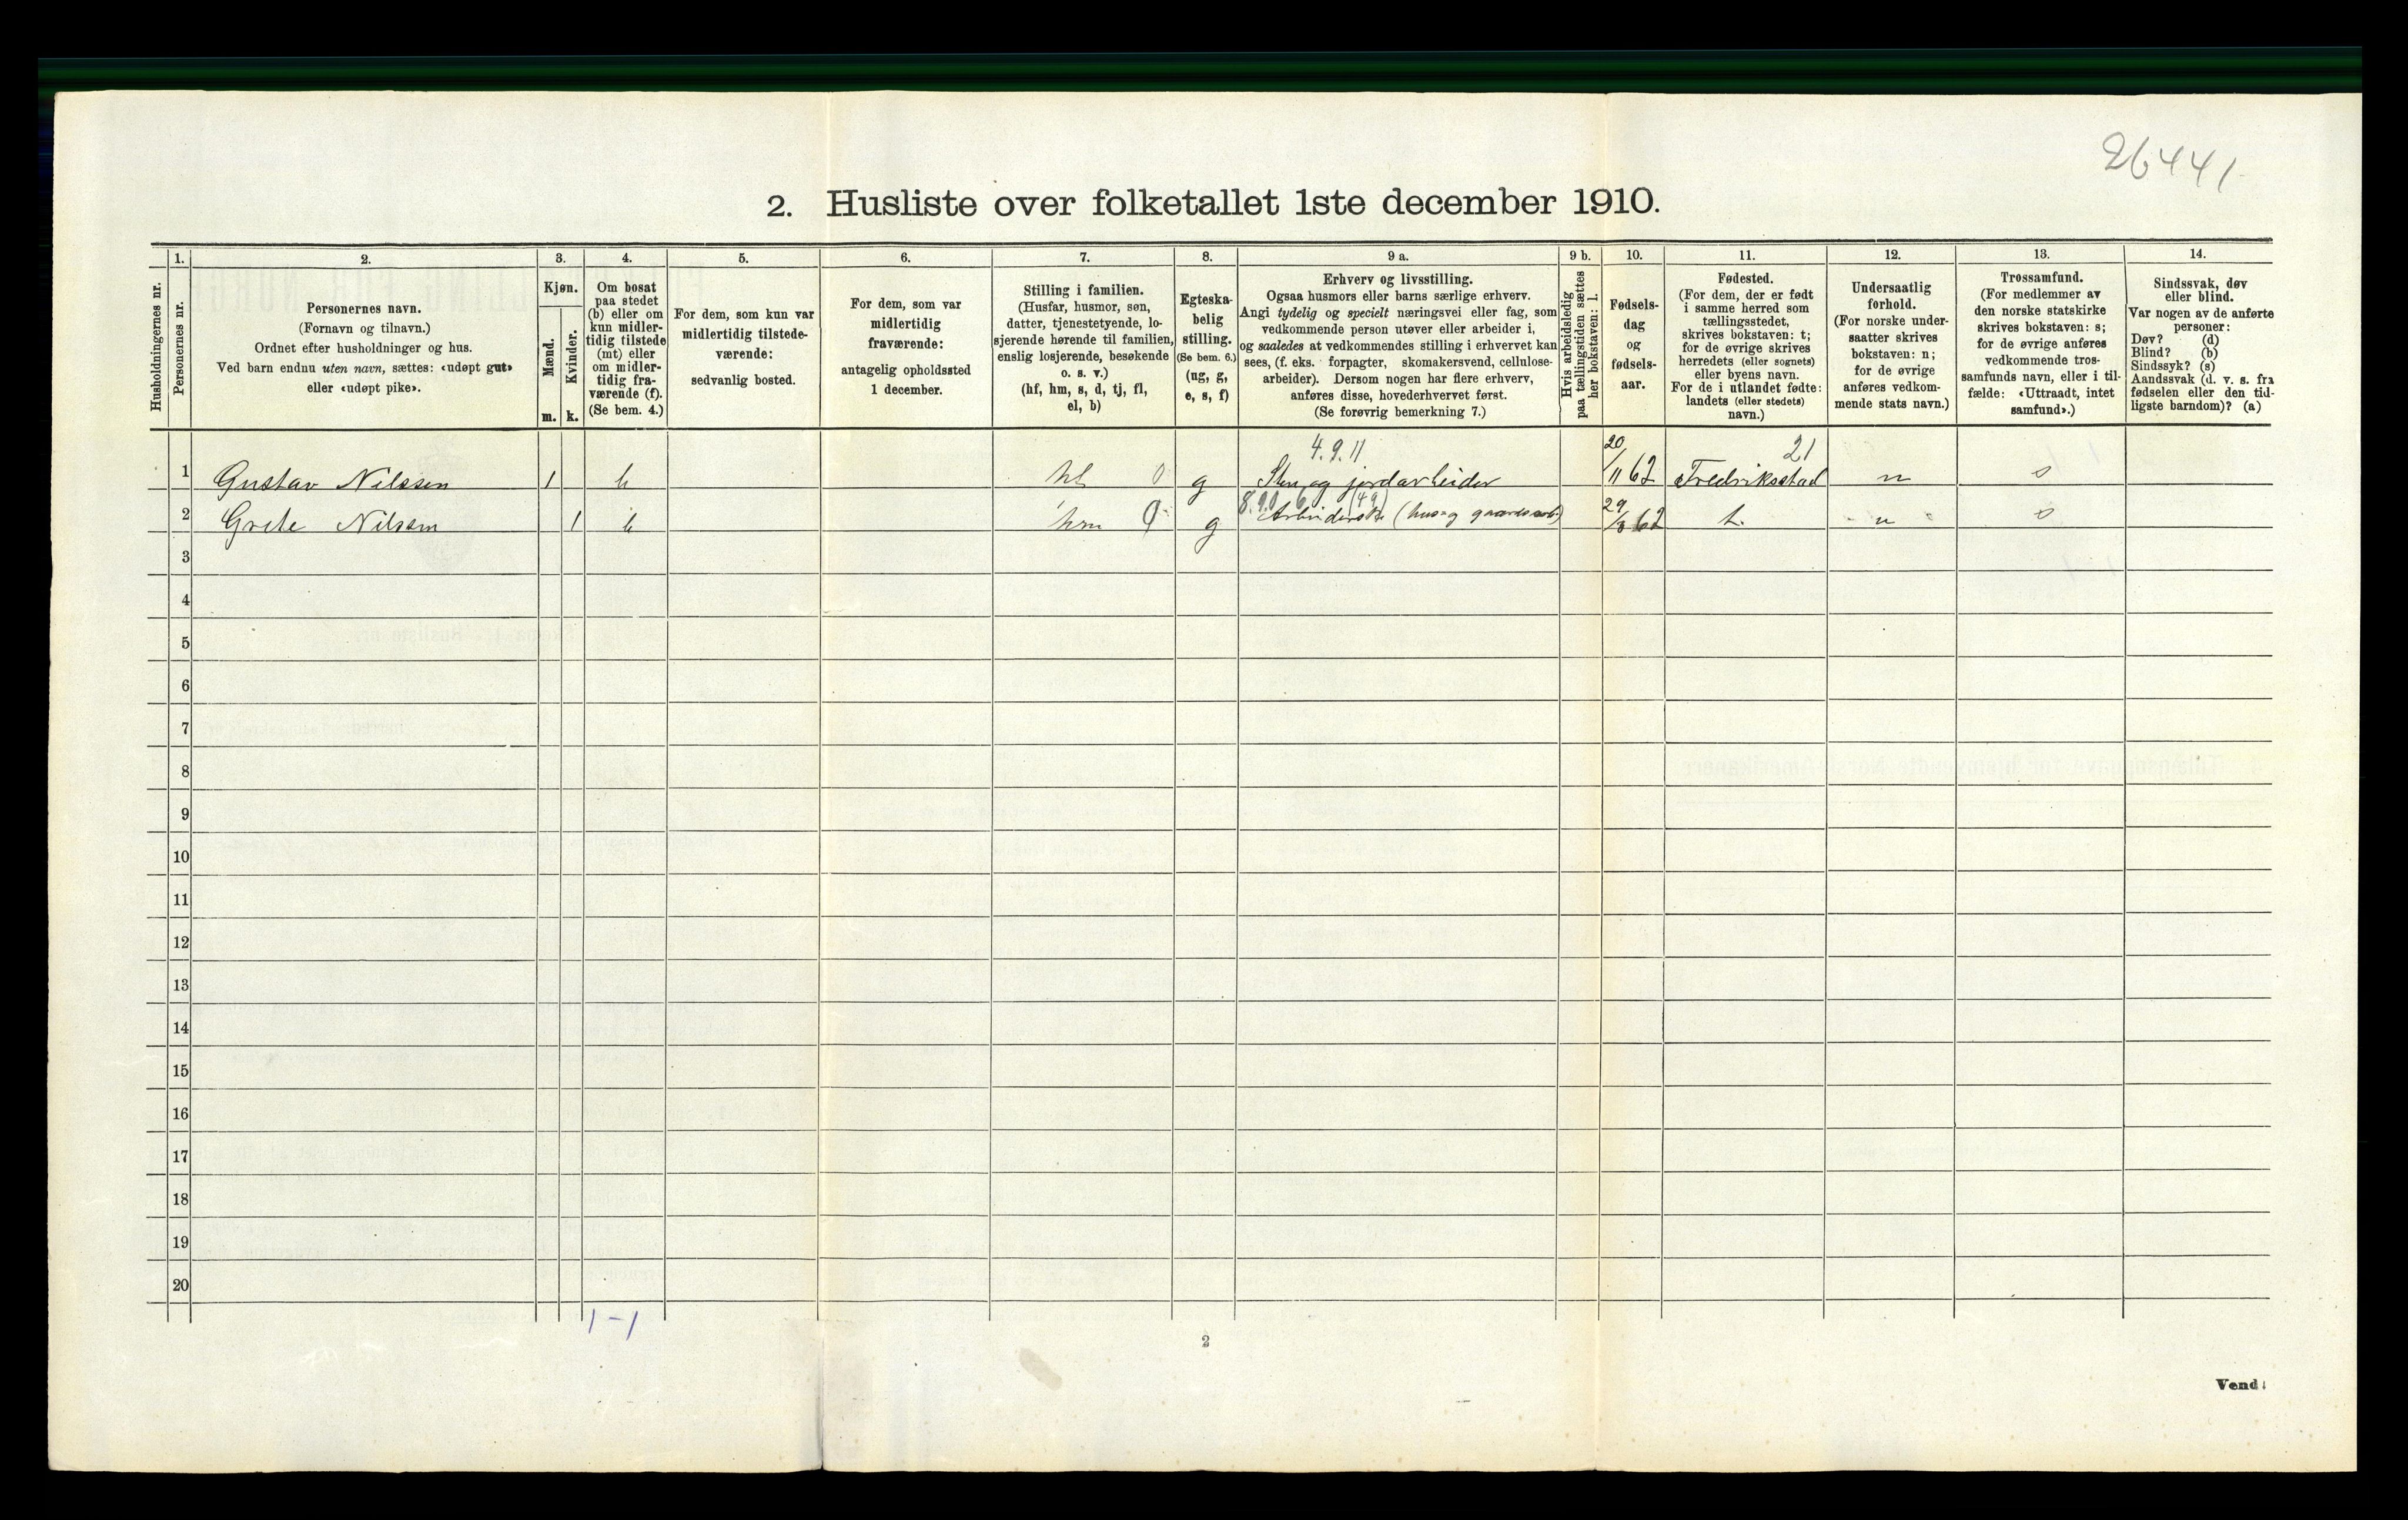 26441
2. Husliste over folketallet 1ste december 1910.
Husholdningernes nr.
1.
Personernes nr.
2.
Personernes navn.
(Fornavn og tilnavn.)
Ordnet efter husholdninger og hus.
Ved barn endnu uten navn, sættes: «udøpt gut»
eller «udøpt pike».
3.
Kjøn.
Mænd.
Kvinder.
m. k.
4.
Om bosat
paa stedet
(b) eller om
kun midler-
tidig tilstede
(mt) eller
om midler-
tidig fra-
værende (f).
(Se bem. 4.)
5.
For dem, som kun var
midlertidig tilstede-
værende:
sedvanlig bosted.
6.
For dem, som var
midlertidig
fraværende:
antagelig opholdssted
1 december.
7.
Stilling i familien.
(Husfar, husmor, søn,
datter, tjenestetyende, lo-
sjerende hørende til familien,
enslig losjerende, besøkende
o. s. v.)
(hf, hm, s, d, tj, fl,
el, b)
8.
Egteska-
belig
stilling.
(Se bem. 6.)
(ug, g,
e, s, f)
9 a.
Erhverv og livsstilling.
Ogsaa husmors eller barns særlige erhverv.
Angi tydelig og specielt næringsvei eller fag, som
vedkommende person utøver eller arbeider i,
og saaledes at vedkommendes stilling i erhvervet kan
sees, (f. eks. forpagter, skomakersvend, cellulose-
arbeider). Dersom nogen har flere erhverv,
anføres disse, hovederhvervet først.
(Se forøvrig bemerkning 7.)
9 b.
Hvis arbeidsledig
paa tællingstiden sættes
her bokstaven: l.
10.
Fødsels-
dag
og
fødsels-
aar.
11.
Fødested.
(For dem, der er født
i samme herred som
tællingsstedet,
skrives bokstaven: t;
for de øvrige skrives
herredets (eller sognets)
eller byens navn.
For de i utlandet fødte:
landets (eller stedets)
navn.)
12.
Undersaatlig
forhold.
(For norske under-
saatter skrives
bokstaven: n;
for de øvrige
anføres vedkom-
mende stats navn.)
13.
Trossamfund.
(For medlemmer av
den norske statskirke
skrives bokstaven: s;
for de øvrige anføres
vedkommende tros-
samfunds navn, eller i til-
fælde: «Uttraadt, intet
samfund».)
14.
Sindssvak, døv
eller blind.
Var nogen av de anførte
personer:
Døv? (d)
Blind? (b)
Sindssyk? (s)
Aandssvak (d. v. s. fra
fødselen eller den tid-
ligste barndom)? (a)
4.9.11 21
1 Gustav Nilssen 1 b hf 0 g Sten og jordarbeider 20/11 62 Fredriksstad n s
2 Grete Nilssen 1 b hm 0 g Arbeiderske (hus og gaardsarb.) 29/8 62 t. n s
3
4
5
6
7
8
9
10
11
12
13
14
15
16
17
18
19
20
1-1
2
Vend!